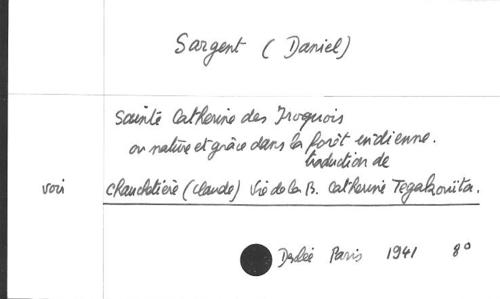 Sargent (Daniel)
Sainte Catherine des Iroquois
ou nature et grâce dans la forêt indienne.
traduction de
voir Chauchetière (Claude) Vie de la B. Catherine Tegakouïta.
Paris 1941 8°